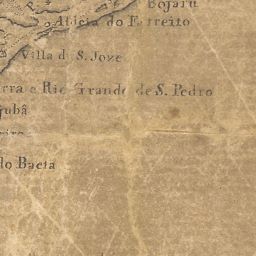 Bojaru
Aldeia do Estreito
Villa d S. Joze
rra e Rio Grande de S. Pedro
gubâ
eiro
do Bacta